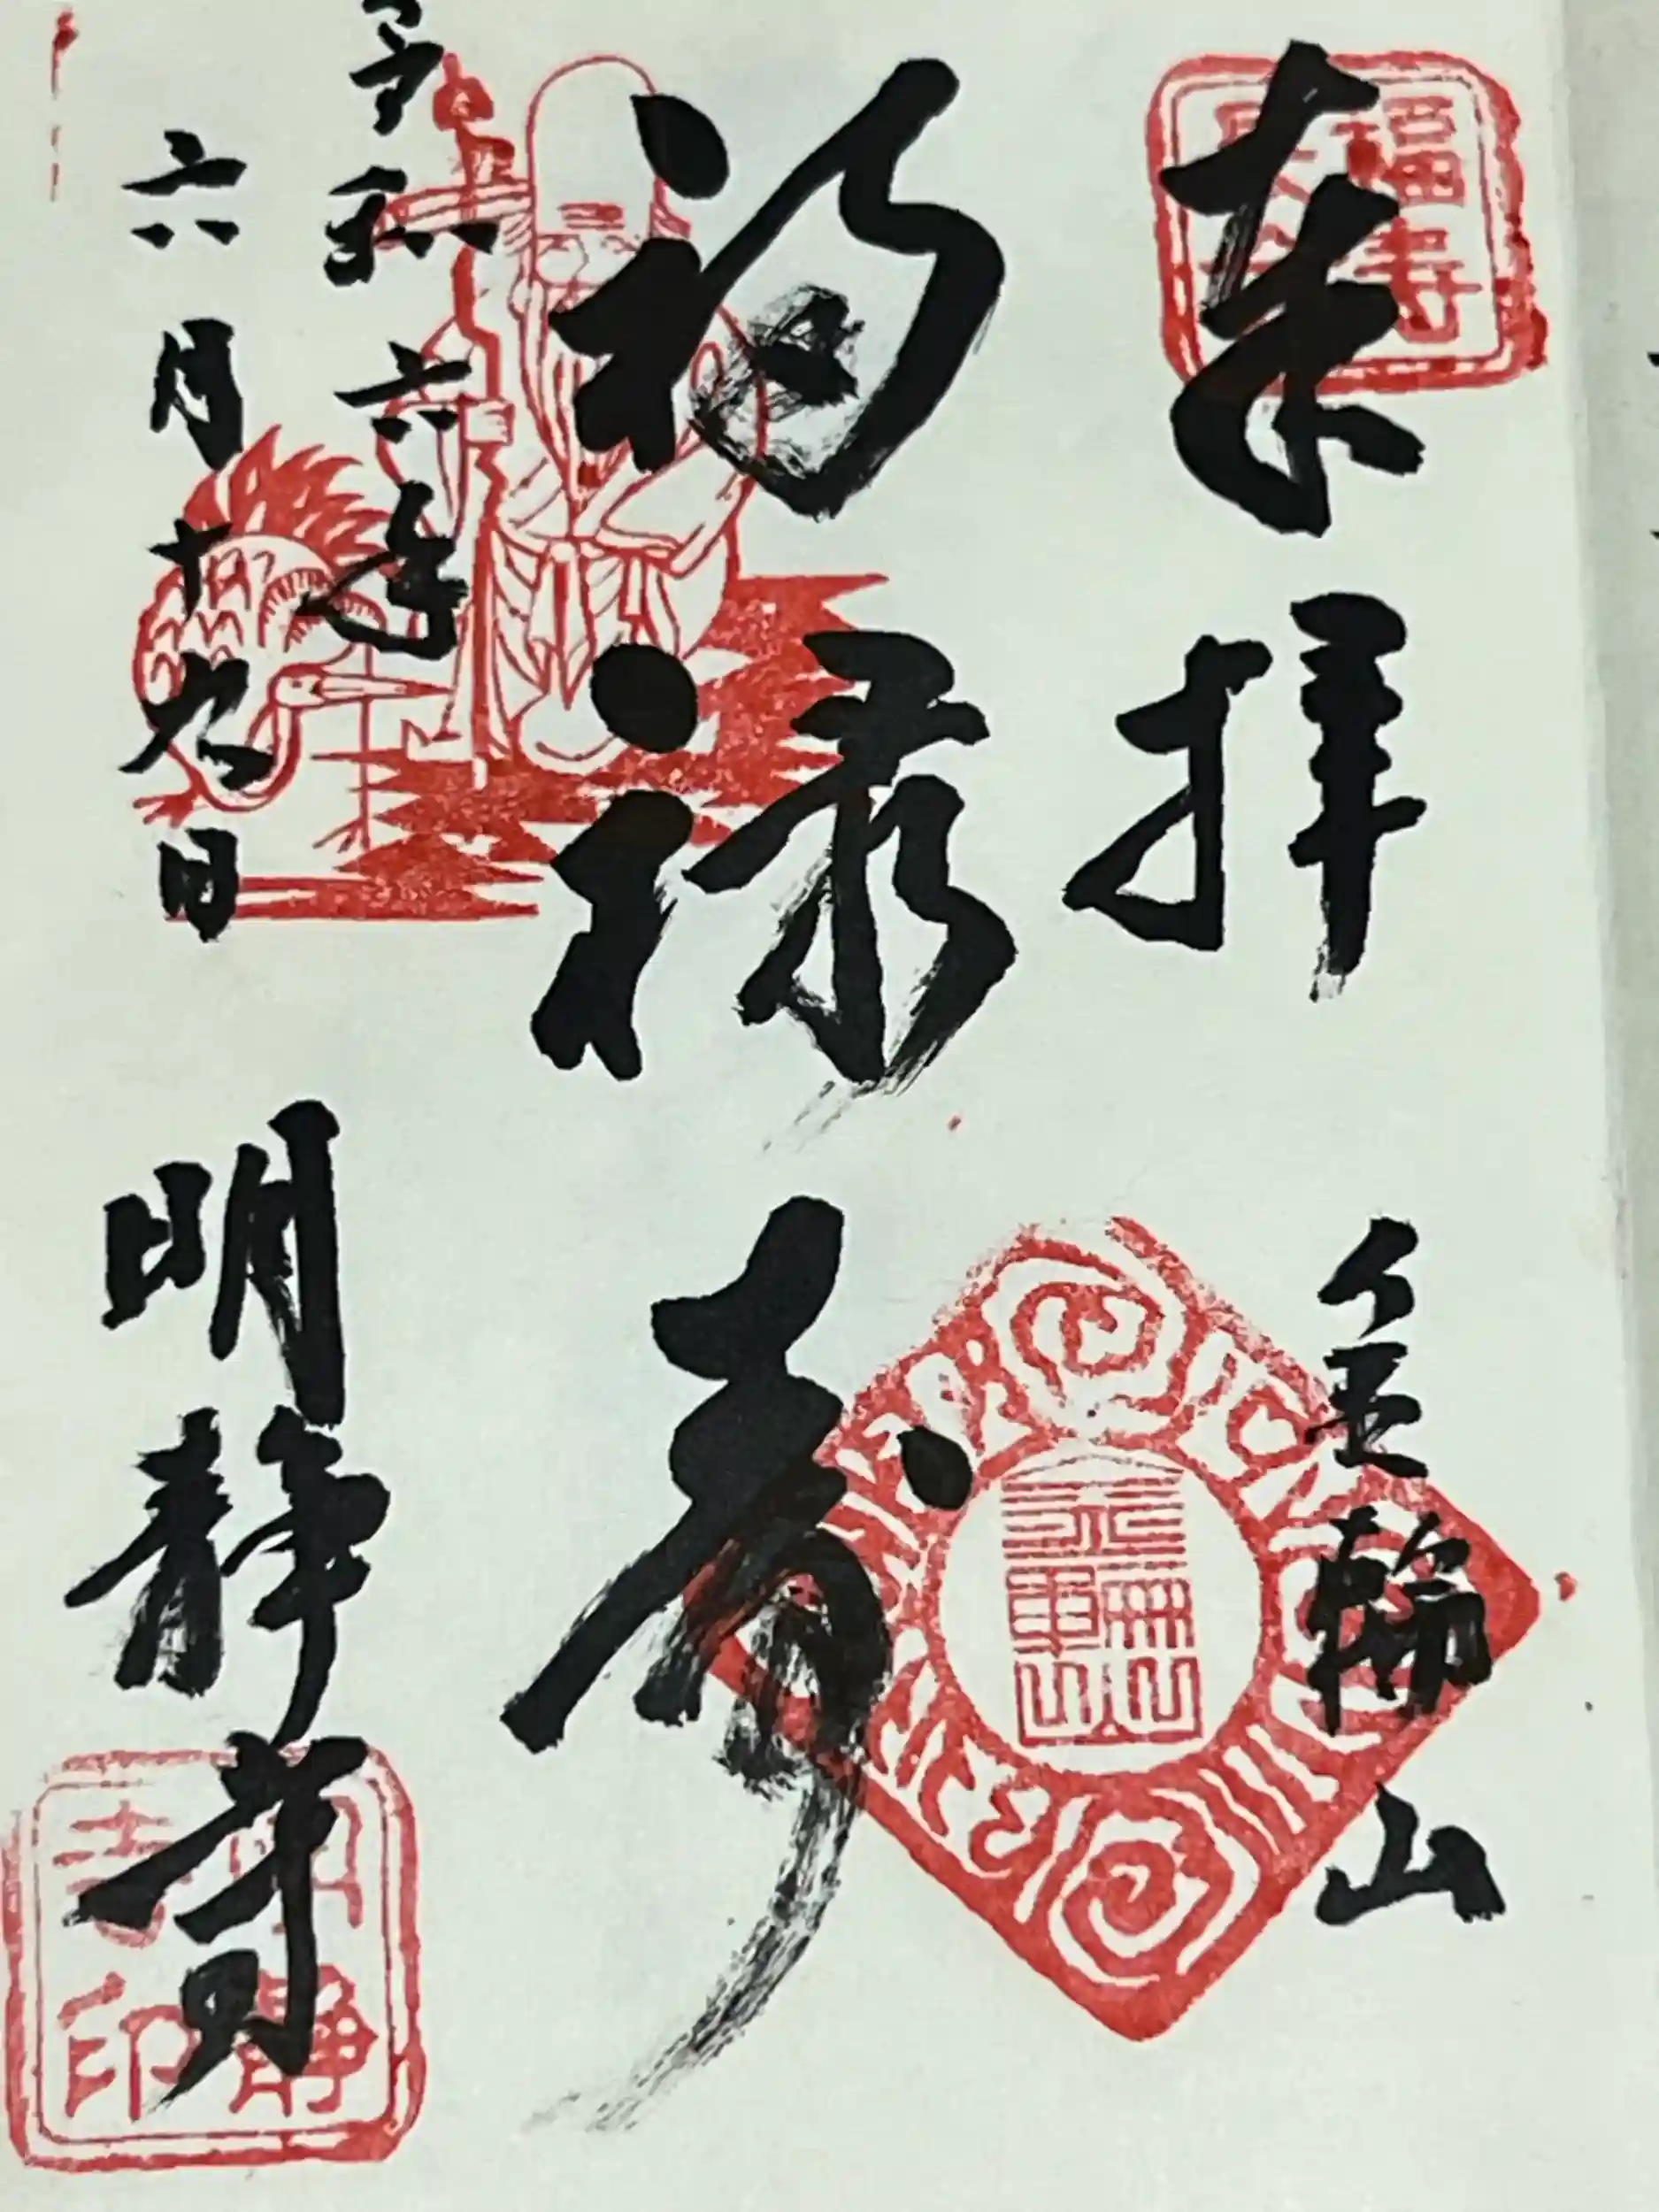 奉拝
福寿
金輪山
福禄寿
令和六年
六月十九日
明静寺
明静
寺印